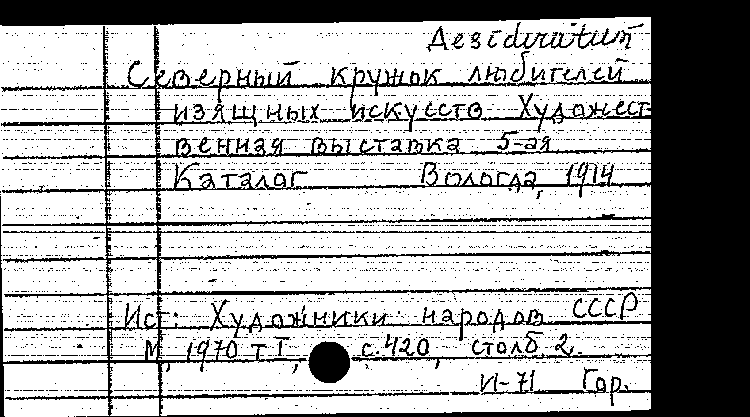 Дезideratum
Северный кружок любителей
изящных искусств Художест
венная выставка 5-ая
Каталог Вологда, 1914
Ист: Художники народов СССР
М, 1970 т I, с. 420, столб 2.
И-71 Гор.